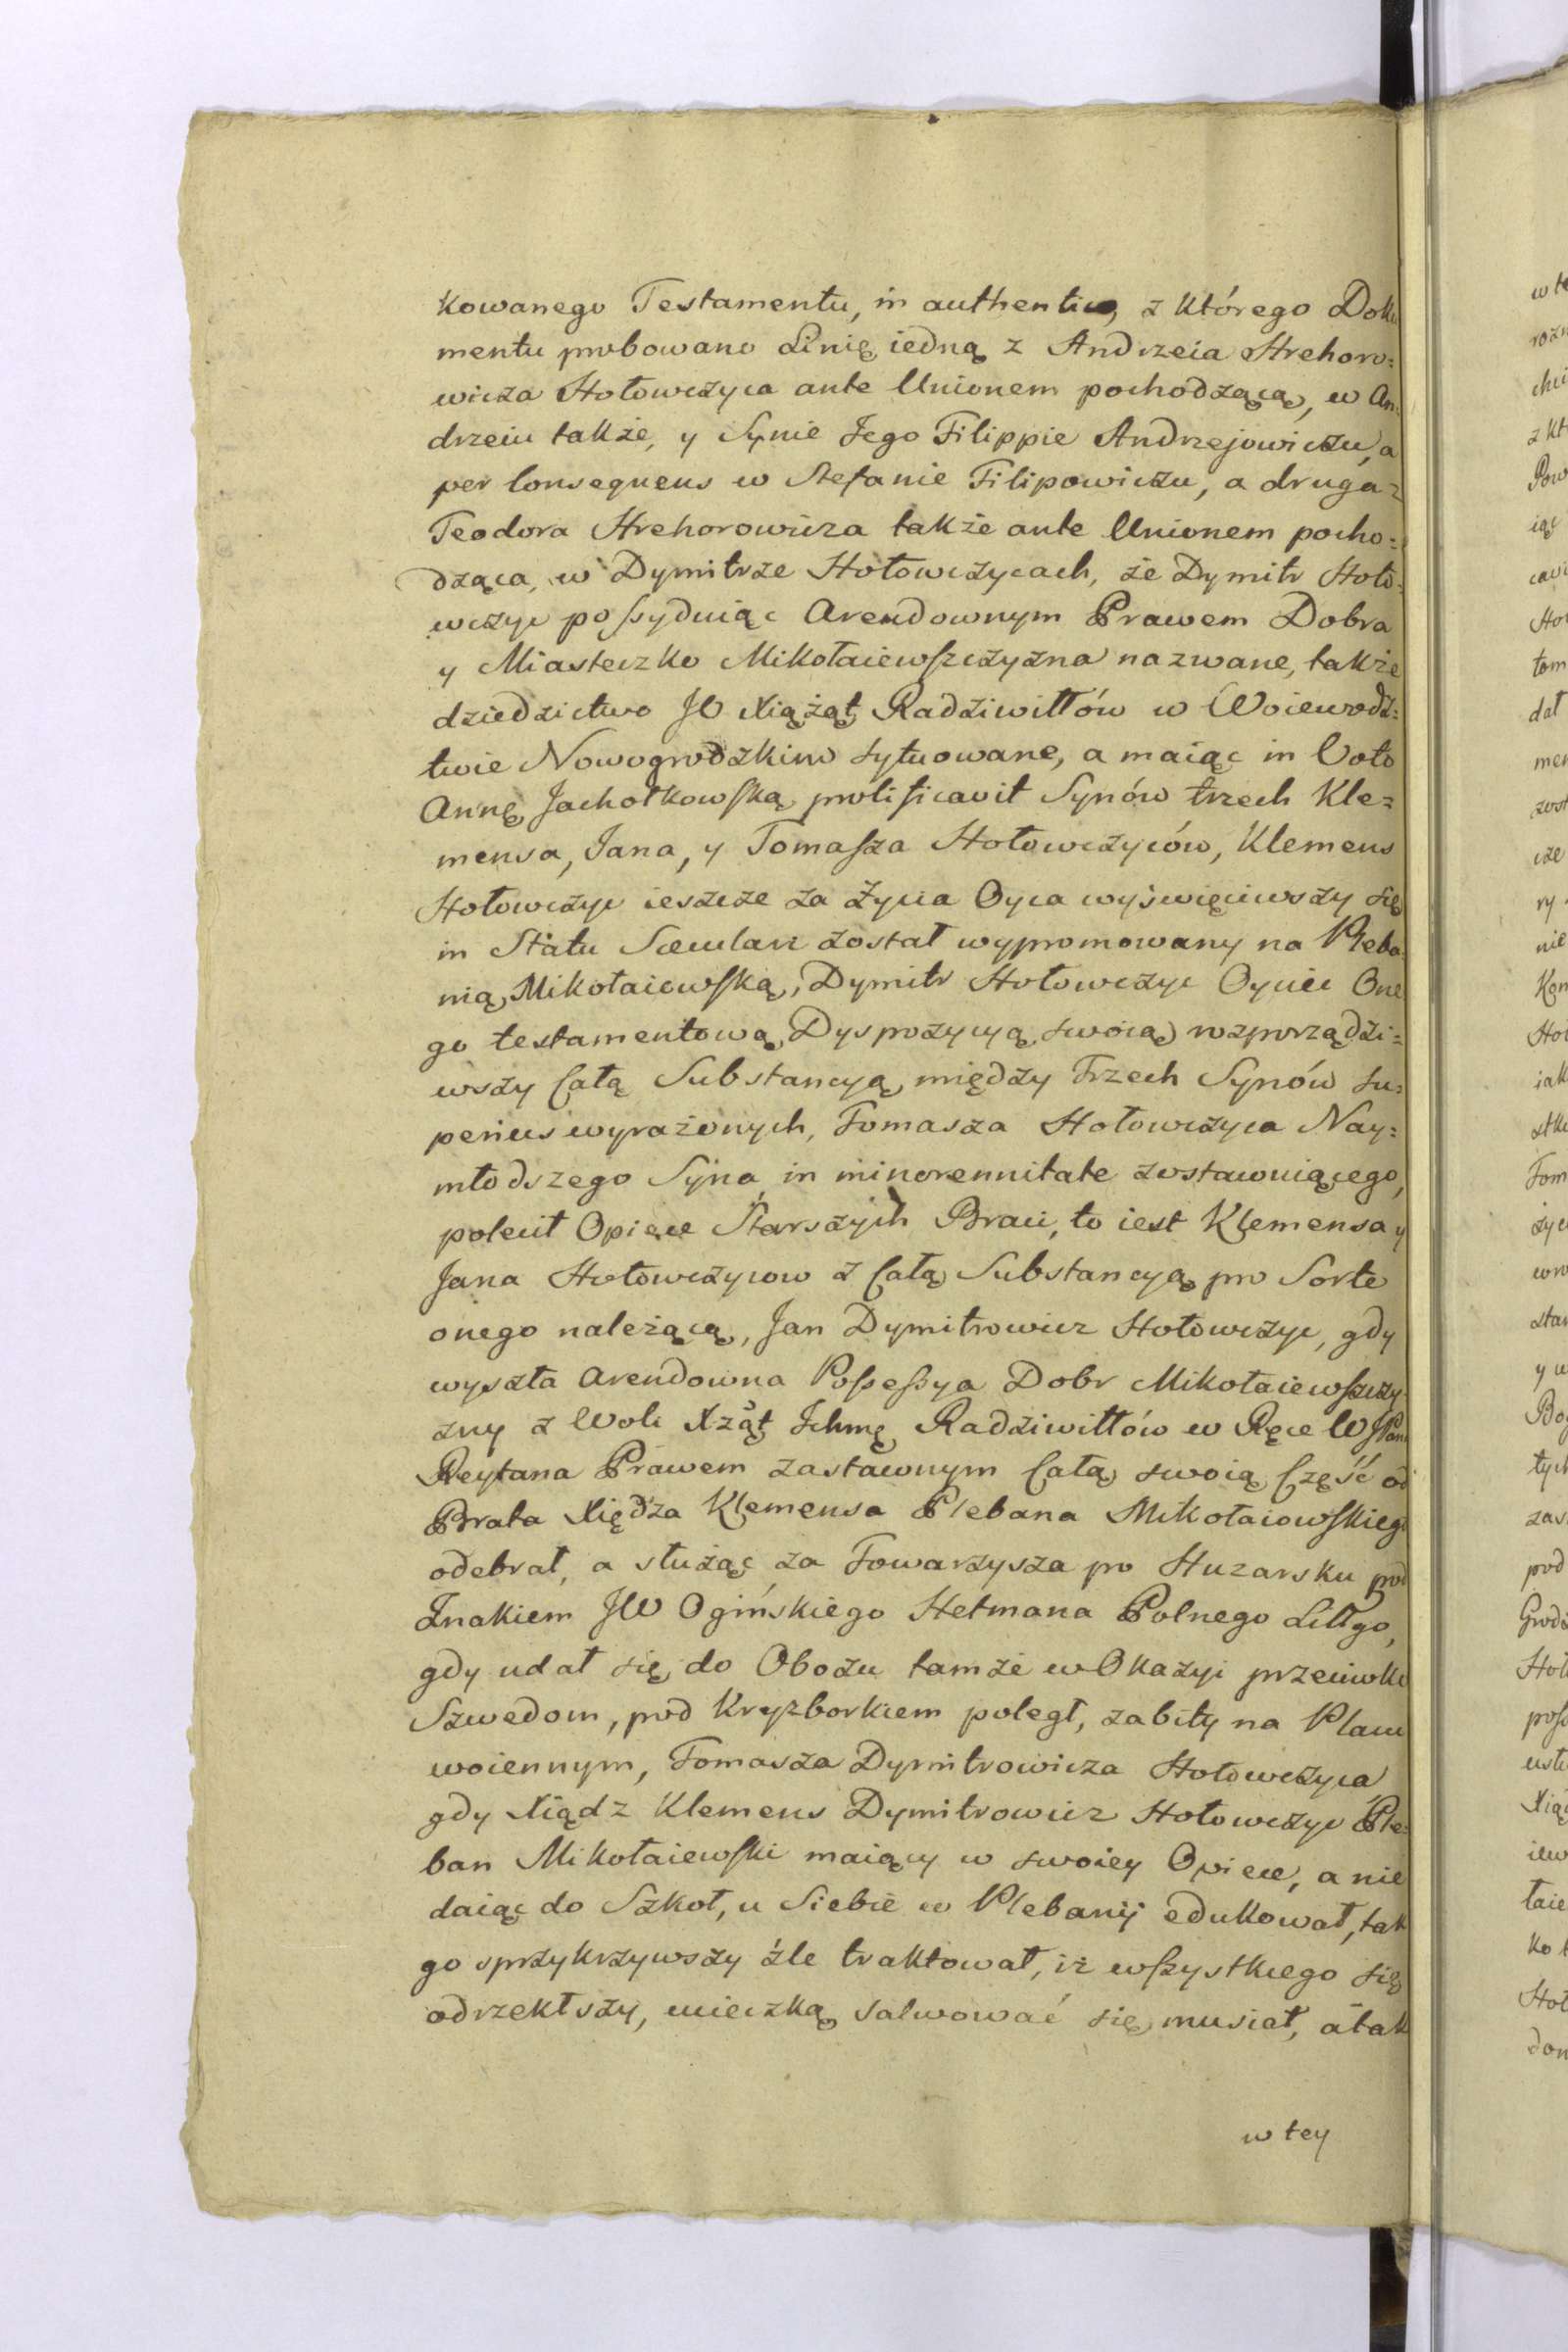 kowanego Testamentu, in authentico, z którego Doku
mentu probowano Linię iedną z Andrzeia Hrehoro=
wicza Hołowczyca ante Unionem pochodzącą, w An=
drzeiu także, y Synie Jego Filippie Andrzejowiczu, a
per Consequens w Stefanie Filipowiczu, a druga z
Teodora Hrehorowicza także ante Unionem pocho=
dząca, w Dymitrze Hołowczycach, że Dymitr Hoło=
wczyc possyduiąc Arendownym Prawem Dobra
y Miasteczko Mikołaiewszczyzna nazwane, także
dziedzictwo JW Xiążąt Radziwiłłów w Woiewodz=
twie Nowogrodzkim sytuowane, a maiąc in Voto
Annę Jachołkowską prolificavit Synów trzech Kle=
mensa, Jana, y Tomasza Hołowczyców, Klemens
Hołowczyc ieszcze za Życia Oyca wyświęciwszy się
in Statu Sæculari został wypromowany na Pleba
nią Mikołaiewską, Dymitr Hołowczyc Oyciec One
go testamentową Dyspozycyą swoią rozporządzi=
wszy Całą Substancyą między Trzech Synów su=
perius wyrażonych, Tomasza Hołowczyca Nay=
młodszego Syna in minorennitate zostawuiącego,
polecił Opiece Starszych Braci, to iest Klemensa y
Jana Hołowczycow z Całą Substancyą pro Sorte
onego należącą, Jan Dymitrowicz Hołowczyc, gdy
wyszła Arendowna Possessya Dobr Mikołaiewszczy
zny z Woli Xżąt Ichmę Radziwiłłów w Ręce WJPana
Reytana Prawem zastawnym Całą swoią Część od
Brata Xiędza Klemensa Plebana Mikołaiowskiego
odebrał, a służąc za Towarzysza po Huzarsku pod
Znakiem JW Ogińskiego Hetmana Polnego Littgo,
gdy udał się do Obozu tamże w Okazyi przeciwko
Szwedom, pod Kryzborkiem poległ, zabity na Placu
woiennym, Tomasza Dymitrowicza Hołowczyca
gdy Xiądz Klemens Dymitrowicz Hołowczyc Ple=
ban Mikołaiewski maiący w swoiey Opiece, a nie
daiąc do Szkoł, u Siebie w Plebanij edukował, tak
go sprzykrzywszy źle traktował, iż wszystkiego się
odrzekłszy, ucieczką salwować się musiał, a tak
w tey